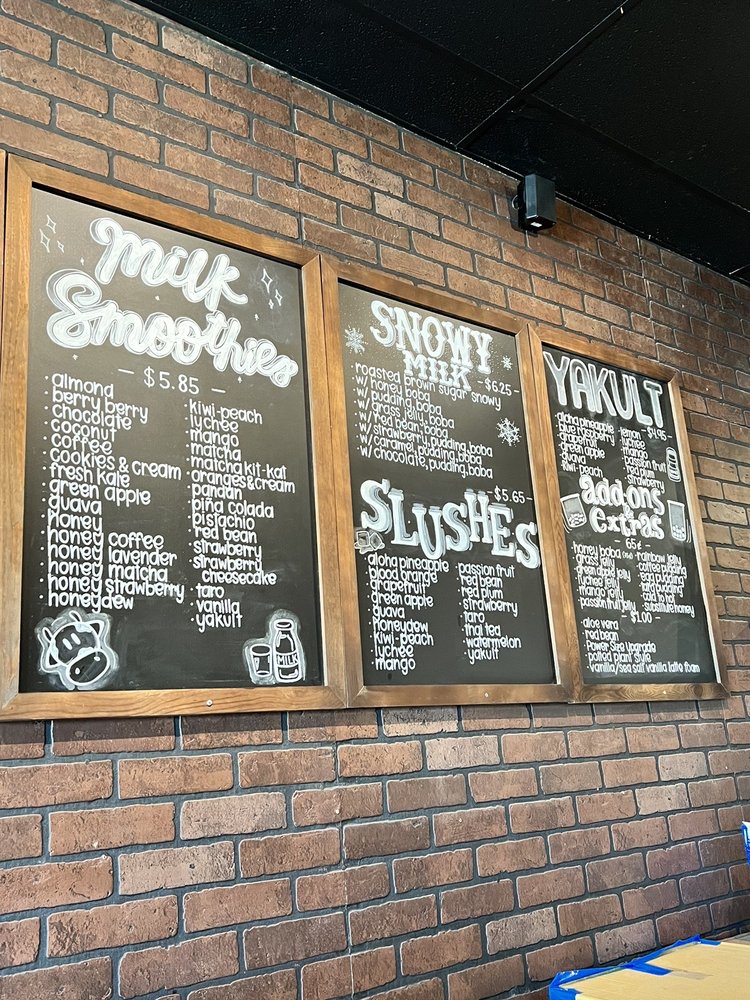 milk
Smoothies
- $5.85 -
· almond
· berry berry
· chocolate
· coconut
· coffee
· cookies & cream
· fresh kale
· green apple
· guava
· honey
· honey coffee
· honey lavender
· honey matcha
· honey strawberry
· honeydew
· kiwi-peach
· lychee
· mango
· matcha
· matcha kit-kat
· oranges & cream
· pandan
· piña colada
· pistachio
· red bean
· strawberry
· strawberry cheesecake
· taro
· vanilla
· yakult
MILK
SNOWY
MILK
- $6.25 -
· roasted brown sugar snowy
· w/ honey boba
· w/ pudding, boba
· w/ grass jelly, boba
· w/ red bean, boba
· w/ strawberry, pudding, boba
· w/ caramel, pudding, boba
· w/ chocolate, pudding, boba
- $5.65 -
SLUSHES
· aloha pineapple
· blood orange
· grapefruit
· green apple
· guava
· honeydew
· kiwi-peach
· lychee
· mango
· passion fruit
· red bean
· red plum
· strawberry
· taro
· thai tea
· watermelon
· yakult
YAKULT
- $4.95 -
· aloha pineapple
· blue raspberry
· grapefruit
· green apple
· guava
· kiwi-peach
· lemon
· lychee
· mango
· passion fruit
· red plum
· strawberry
add-ons
& extras
- 65¢ -
· honey boba
· grass jelly
· green apple jelly
· lychee jelly
· mango jelly
· passion fruit jelly
· rainbow jelly
· coffee pudding
· egg pudding
· taro pudding
· substitute honey
- $1.00 -
· aloe vera
· red bean
· Power Size Upgrade
· potted plant style
· vanilla/sea salt vanilla latte foam